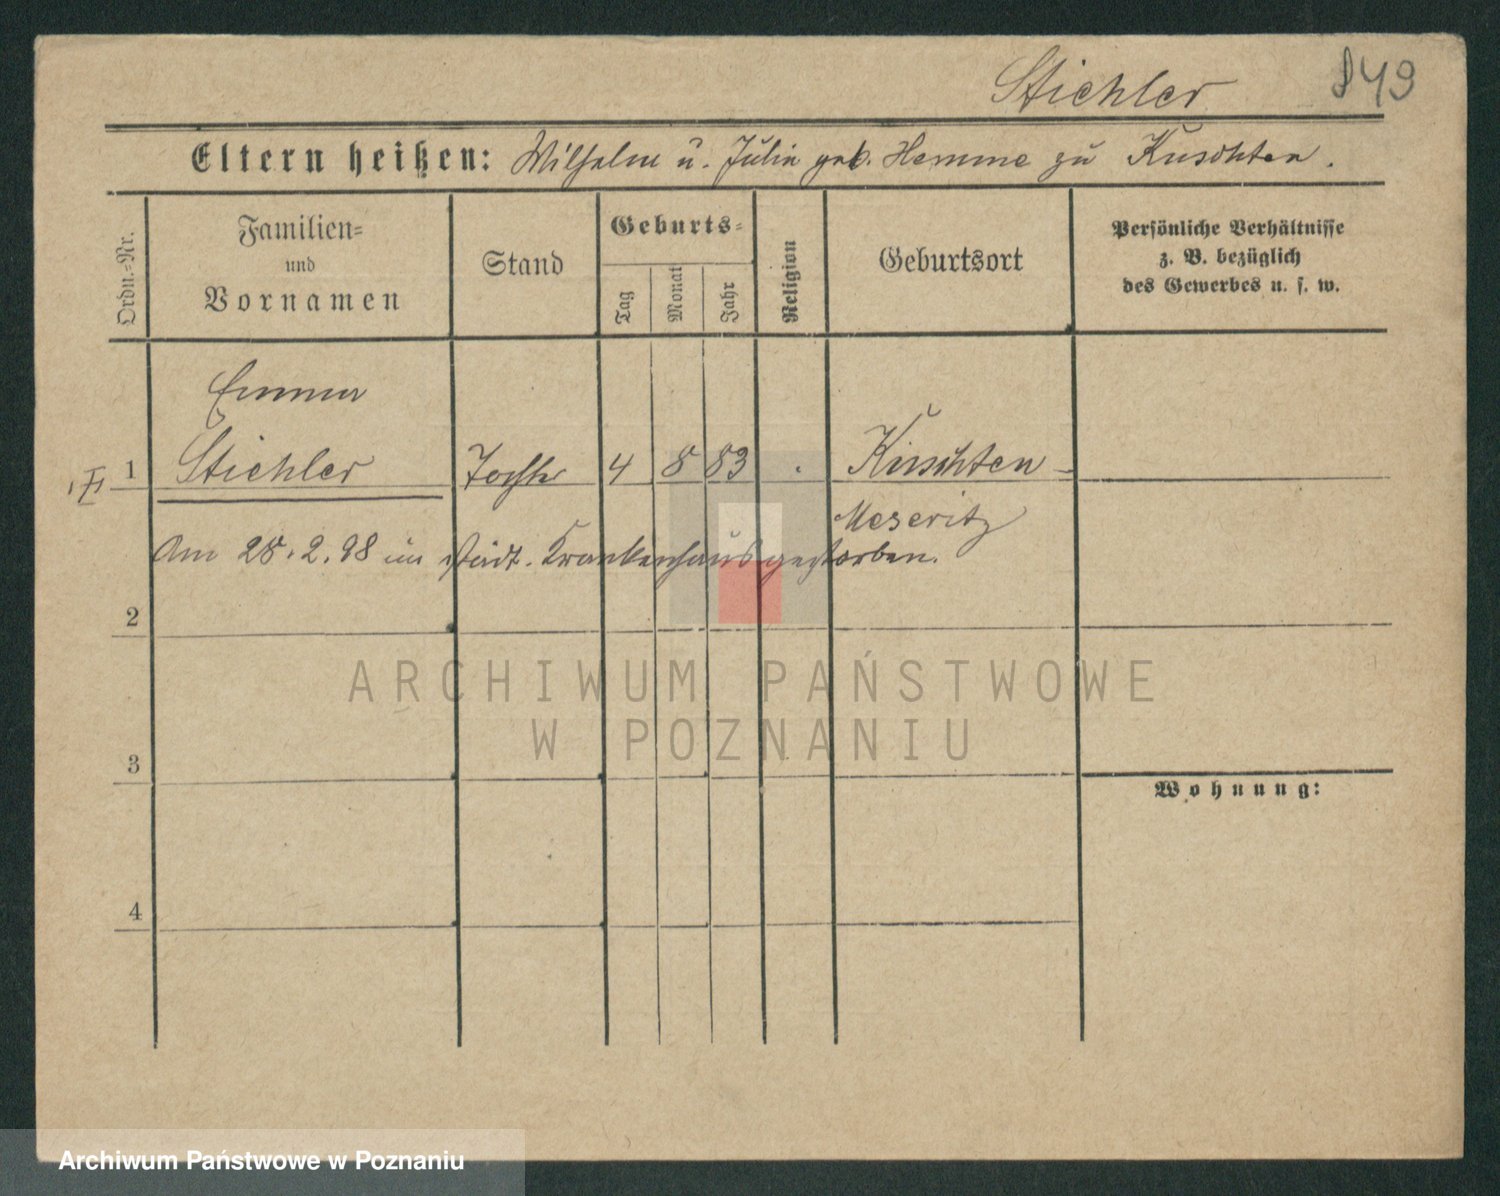 Stichler 849
Eltern heißen: Wilhelm u. Julie geb. Hemme zu Kuschten.
Ordn.-Nr.
Familien-
und
Vornamen
Stand
Geburts-
Tag
Monat
Jahr
Religion
Geburtsort
Persönliche Verhältnisse
z. B. bezüglich
des Gewerbes u. s. w.
Emma
1 Stichler Tochter 4 8 83 Kuschten
Meseritz
Am 28.2.98 im städt. Krankenhaus gestorben.
2
ARCHIWUM PAŃSTWOWE
W POZNANIU
3
Wohnung:
4
Archiwum Państwowe w Poznaniu